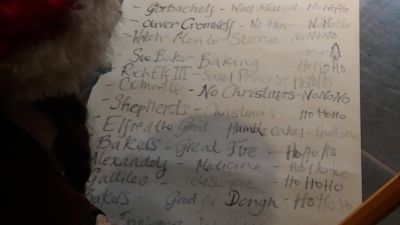 Gorbachels - Wall Melted HoHoHo
Oliver Cromwells - No Fun - NoNoNo
Witch Planter Stone - NoNoNo
Sue Baker Baking HoHoHo
Rich III - Saved Princess HoHoHo
Cromwell - No Christmas - NoNoNo
Shepherds - Christmas HoHoHo
Elfred the Great Humble cakes -
Bakers - Great Fire - HoHoHo
Medicine - HoHoHo
Galileo - Telescope - HoHoHo
Bakers Good for Dough - HoHoHo